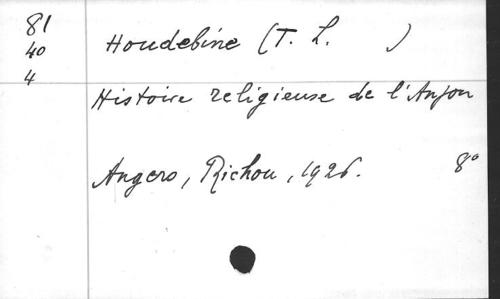 81
40
4
Houdebine (T. L. )
Histoire religieuse de l'Anjou
Angers, Richou, 1926. 8°